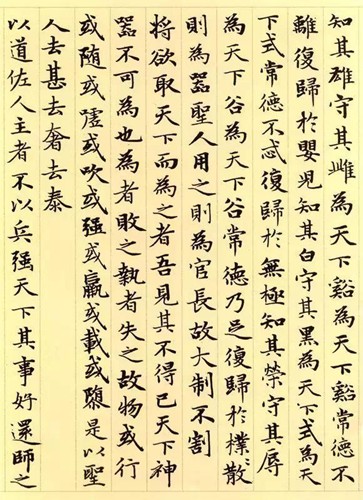 知其雄守其雌為天下谿為天下谿常德不
離復歸於嬰児知其白守其黑為天下式為天
下式常德不忒復歸於無極知其榮守其辱
為天下谷為天下谷常德乃足復歸於樸樸散
則為器聖人用之則為官長故大制不割
將欲取天下而為之者吾見其不得已天下神
器不可為也為者敗之執者失之故物或行
或随或噓或吹或强或羸或載或隳是以聖
人去甚去奢去泰
以道佐人主者不以兵强天下其事好還師之